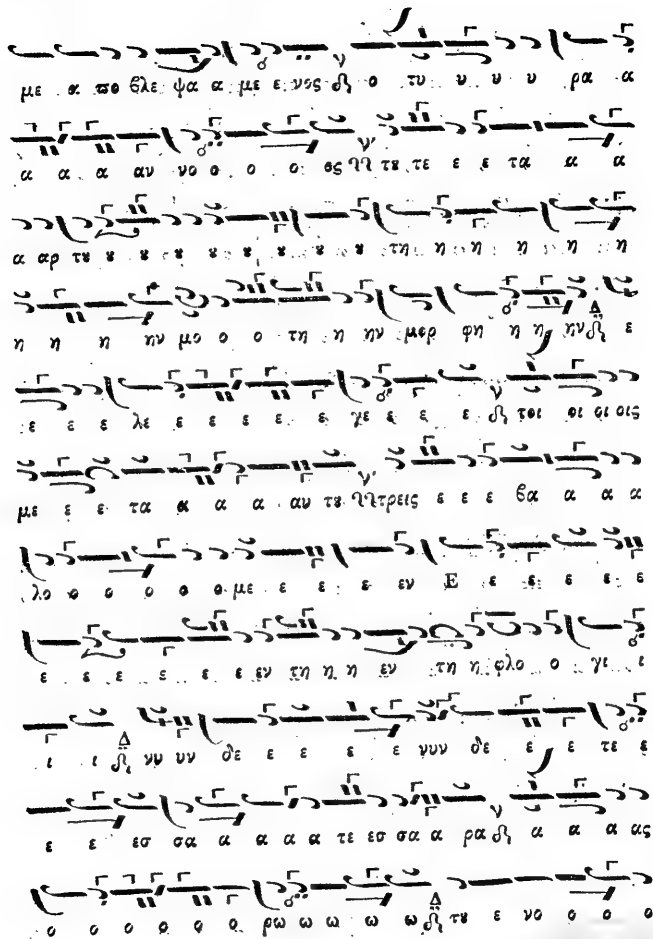 με α πο βλε ψα α με ε νος ο τυ υ υ υ ρα α
α α α αν νο ο ο ο ος του τε ε ε τα α α
α αρ του ου ου ου ου ου ου ου ου τη η η η η η
η η η ην μο ο ο τη η ην μορ φη η η ην ε
ε ε ε λε ε ε ε ε ε γε ε ε ε τοι οι οι οι οις
με ε ε τα α α α αν του τρεις ε ε ε βα α α α
λο ο ο ο ο ο με ε ε ε εν Ε ε ε ε ε ε
ε ε ε ε ε ε ε εν τη η η εν τη η φλο ο γι ι
ι ι νυ υν δε ε ε ε ε ε νυυν δε ε ε ε τε ε
ε ε εσ σα α α α α τε εσ σα α ρα α α α ας
ο ο ο ο ο ο ρω ω ω ω ω του ε νο ο ο ο